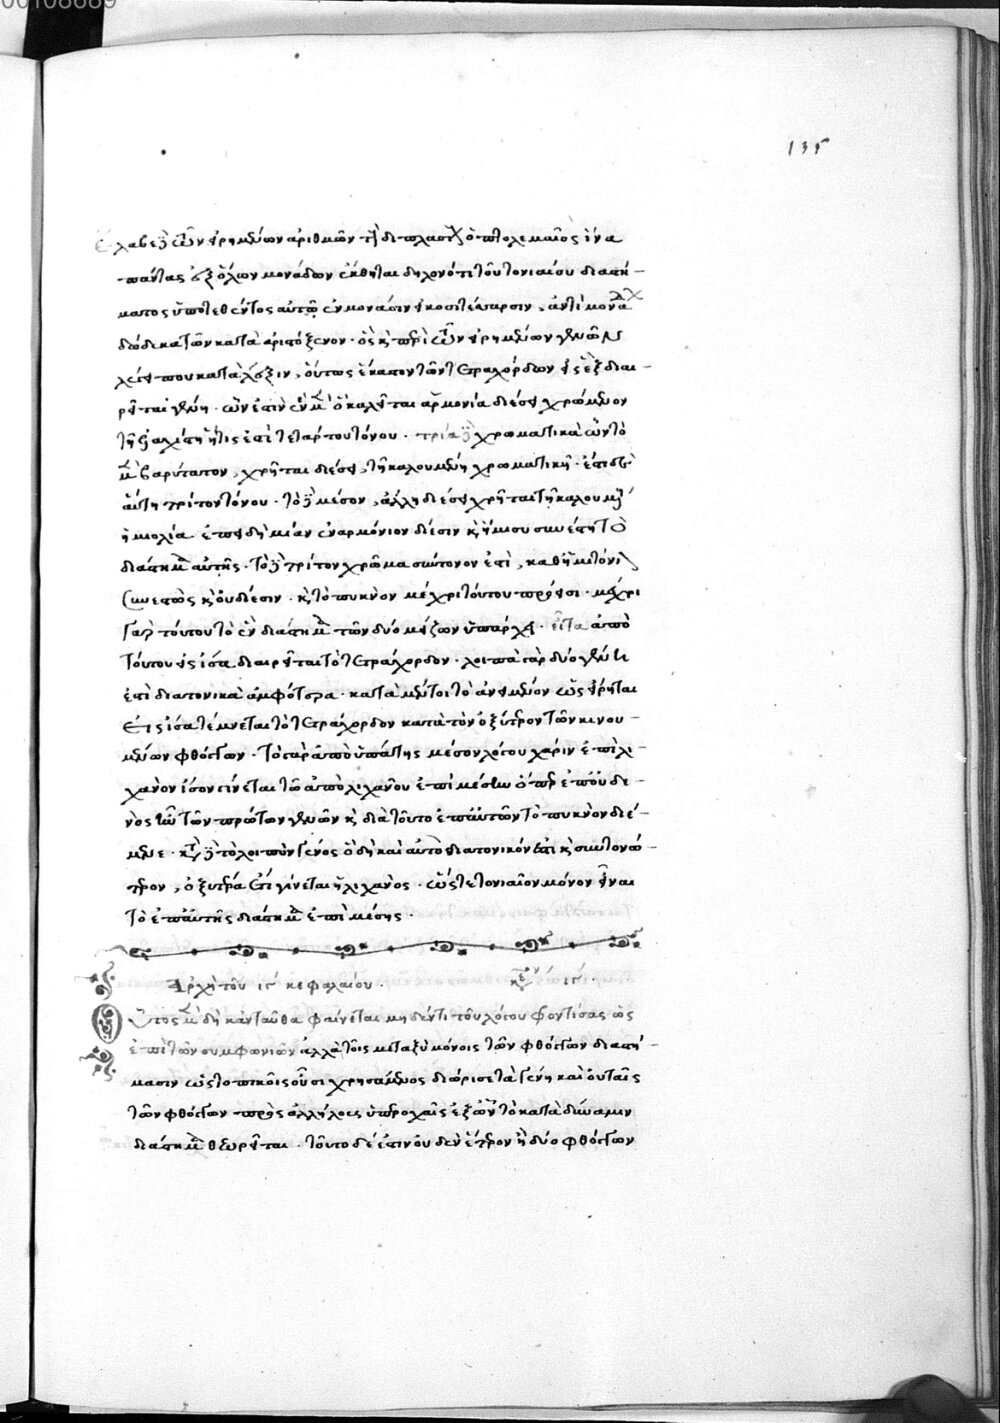 135
ἔλαβε δὲ τῶν εἰρημένων ἀριθμῶν τὴν διπλασίαν ὁ πτολεμαῖος ἵνα
πάντας ἐξ ὅλων μονάδων ἐκθῆται δηλονότι τοῦ τονιαίου διαστή-
ματος ὑποτεθέντος αὐτῷ ἐν μονάσιν εἰκοσιτέσσαρσιν, ἀντὶ μονάδων
δώδεκα τῶν κατὰ ἀριστόξενον. ὃς καὶ περὶ τῶν εἰρημένων γενῶν
λέγει που κατὰ λέξιν, οὕτως ἕκαστον τῶν τετραχόρδων εἰς ἓξ διαι-
ρεῖται γένη. ὧν ἐστιν ἓν μὲν ὃ καλεῖται ἁρμονία διέσει χρώμενον
τῇ ἐλαχίστῃ ἥτις ἐστὶ τέταρτον τόνου. τρία δὲ χρωματικὰ ὧν τὸ
μὲν βαρύτατον, χρῆται διέσει, τῇ καλουμένῃ χρωματικῇ. ἐστὶ δὲ
αὕτη τρίτον τόνου. τὸ δὲ μέσον, ἄλλῃ διέσει χρῆται τῇ καλουμένῃ
ἡμιολίᾳ ἐπειδὴ μίαν ἐναρμόνιον δίεσιν καὶ ἥμισυ συνέστη τὸ
διάστημα αὐτῆς. τὸ δὲ τρίτον χρῶμα σύντονον ἐστὶ, καθ' ἡμιτόνιον
συνεστὼς καὶ οὐ δίεσιν. καὶ τὸ πυκνὸν μέχρι τούτου πρόεισι. μέχρι
γὰρ τούτου τὸ ἓν διάστημα τῶν δύο μεῖζον ὑπάρχει. εἶτα ἀπὸ
τούτου εἰς ἴσα διαιρεῖται τὸ τετράχορδον. λοιπὰ γὰρ δύο γένη
ἐστὶ διατονικὰ ἀμφότερα. κατὰ μέντοι τὸ ἀνειμένον ὡς εἴρηται
εἰς ἴσα τέμνεται τὸ τετράχορδον κατὰ τὸν ὀξύτερον τῶν κινου-
μένων φθόγγων. τὸ γὰρ ἀπὸ ὑπάτης μέσον λόγου χάριν ἐπὶ λι-
χανὸν ἴσον γίνεται τῷ ἀπὸ λιχανοῦ ἐπὶ μέσην ὅπερ ἐπ' οὐδε-
νὸς ἦν τῶν πρώτων γενῶν καὶ διὰ τοῦτο ἐπ' αὐτῶν τὸ πυκνὸν διέ-
μενε. κατὰ δὲ τὸ λοιπὸν γένος ὃ δὴ καὶ αὐτὸ διατονικόν ἐστι καὶ συντονώ-
τερον, ὀξυτέρα ἔτι γίνεται ἡ λιχανὸς. ὥστε τονιαῖον μόνον εἶναι
τὸ ἐπ' αὐτῆς διάστημα ἐπὶ μέσης.
Ἀρχὴ τοῦ ιγ κεφαλαίου. κείμενον ιγ.
Οὗτος μὲν δὴ κἀνταῦθα φαίνεται μηδέν τι τοῦ λόγου φροντίσας ὡς
ἐπὶ τῶν συμφωνιῶν ἀλλὰ τοῖς μεταξὺ μόνοις τῶν φθόγγων διαστή-
μασιν ὡς τοπικοῖς οὖσι χρησάμενος διώρισε τὰ γένη καὶ οὐ ταῖς
τῶν φθόγγων πρὸς ἀλλήλους ὑπεροχαῖς ἐξ ὧν τὸ κατὰ δύναμιν
διάστημα θεωρεῖται. τοῦτο δέ ἐστιν οὐδὲν ἕτερον ἢ δύο φθόγγων